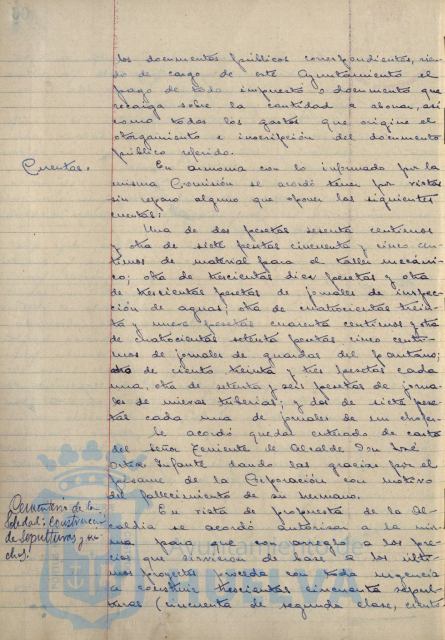 los documentos públicos correspondientes, sien-
do de cargo de este Ayuntamiento el
pago de todo impuesto o documento que
recaiga sobre la cantidad a abonar, así
como todos los gastos que origine el
otorgamiento e inscripción del documento
público referido.
Cuentas.
En armonia con lo informado por la
misma Comisión se acordó tener por vistas
sin reparo alguno que oponer las siguientes
cuentas:
Una de dos pesetas sesenta centimos
y otra de siete pesetas cincuenta y cinco cen-
timos de material para el taller mecáni-
co; otra de trescientas diez pesetas y otra
de trescientas pesetas de jornales de inspec-
ción de aguas; otra de cuatrocientas trein-
ta y nueve pesetas cuarenta centimos y otra
de cuatrocientas setenta pesetas cinco centi-
mos de jornales de guardas del pantano;
dos de ciento treinta y tres pesetas cada
una, otra de setenta y seis pesetas de jorna-
les de nuevas tuberias; y dos de siete pese-
tas cada una de jornales de un chofer.
Se acordó quedar enterado de carta
del Señor Teniente de Alcalde Don José
Ortiz Infante dando las gracias por el
pesame de la Corporación con motivo
del fallecimiento de su hermano.
Cementerio de la
Soledad: Construcción
de sepulturas y ni-
chos.
En vista de propuesta de la Al-
caldia se acordó autorizar a la mis-
ma para que con arreglo a los pre-
cios que sirvieron de base a los últi-
mos proyectos proceda con toda urgencia
a construir trescientas cincuenta sepul-
turas (cincuenta de segunda clase, ciento
Ayuntamiento de
HUELVA